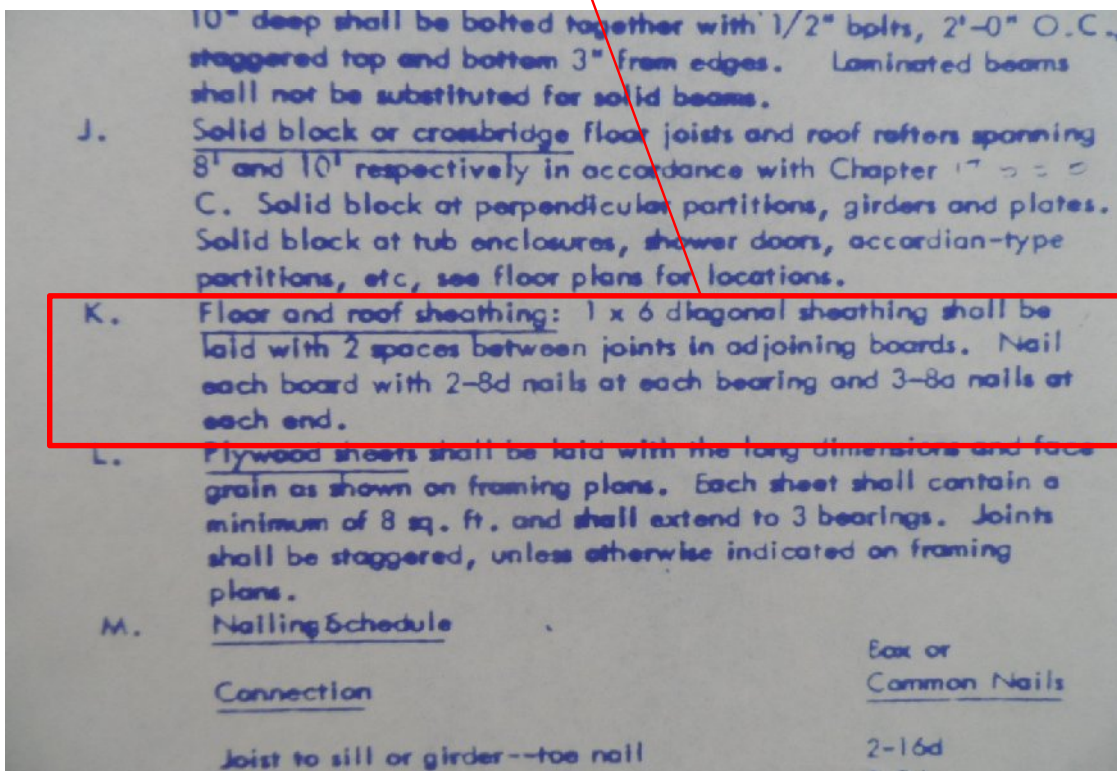 10" deep shall be bolted together with 1/2" bolts, 2'-0" O.C.,
staggered top and bottom 3" from edges. Laminated beams
shall not be substituted for solid beams.
J. Solid block or crossbridge floor joists and roof rafters spanning
8' and 10' respectively in accordance with Chapter
C. Solid block at perpendicular partitions, girders and plates.
Solid block at tub enclosures, shower doors, accordian-type
partitions, etc, see floor plans for locations.
K. Floor and roof sheathing: 1 x 6 diagonal sheathing shall be
laid with 2 spaces between joints in adjoining boards. Nail
each board with 2-8d nails at each bearing and 3-8d nails at
each end.
L. Plywood sheets shall be laid with the long dimensions and face
grain as shown on framing plans. Each sheet shall contain a
minimum of 8 sq. ft. and shall extend to 3 bearings. Joints
shall be staggered, unless otherwise indicated on framing
plans.
M. Nailing Schedule
Box or
Connection Common Nails
Joist to sill or girder--toe nail 2-16d